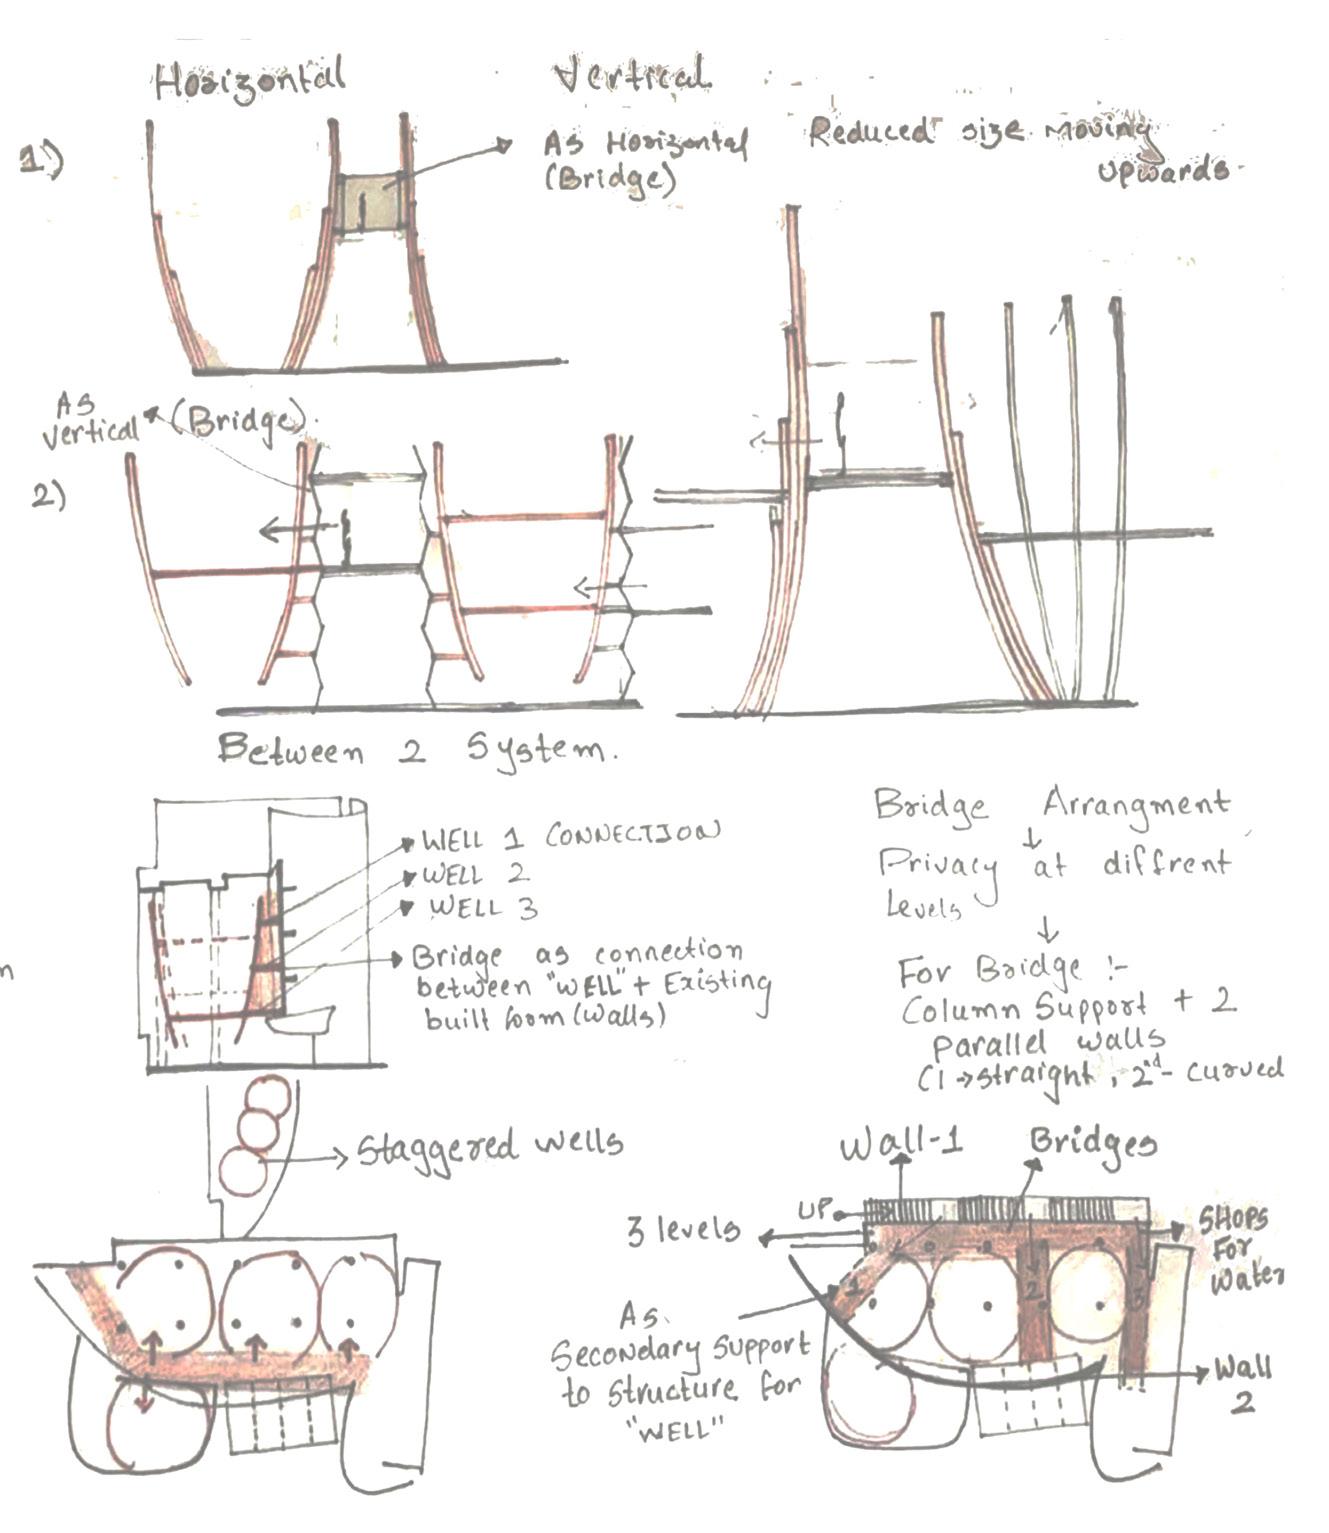 Horizontal
Vertical
1)
As Horizontal
(Bridge)
Reduced size moving
upwards
As
vertical
(Bridge).
2)
Between 2 System.
WELL 1 CONNECTION
WELL 2
WELL 3
Bridge as connection
between "WELL" + Existing
built form (walls)
Bridge Arrangment
Privacy at diffrent
Levels
For Bridge :-
Column Support + 2
parallel walls
(1 → straight, 2nd - curved
n
Staggered wells
Wall-1
Bridges
UP
3 levels
SHOPS
For
Water
1
2
3
As
Secondary Support
to structure for
"WELL"
Wall
2